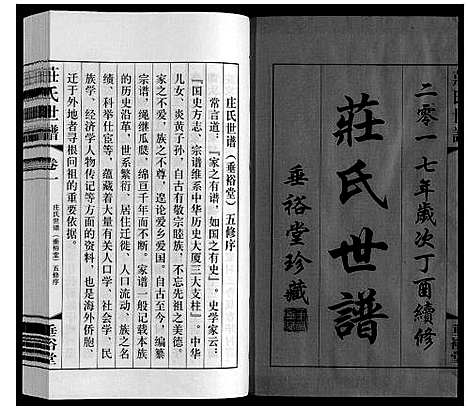 二零一七年歲次丁酉續修
莊氏世譜
垂裕堂珍藏
庄氏世谱（垂裕堂）五修序
常言道：『家之有谱，如国之有史』。史学家云：
『国史方志、宗谱维系中华历史大厦三大支柱』。中华
儿女、炎黄子孙，自古有敬宗睦族，不忘先祖之美德。
家之不爱，族之不尊，遑论爱乡爱国。自古至今，编纂
宗谱，绳继瓜瓞，绵亘千年而不断。家谱一般记载本族
的历史沿革、世系繁衍、居住迁徙、人口流动、族之名
绩、科举仕宦等，蕴藏着大量有关人口学、社会学、民
族学、经济学人物传记等方面的资料，也是海外侨胞、
迁于外地者寻根问祖的重要依据。
莊氏世譜
卷一
庄氏世谱（垂裕堂）五修序
垂裕堂